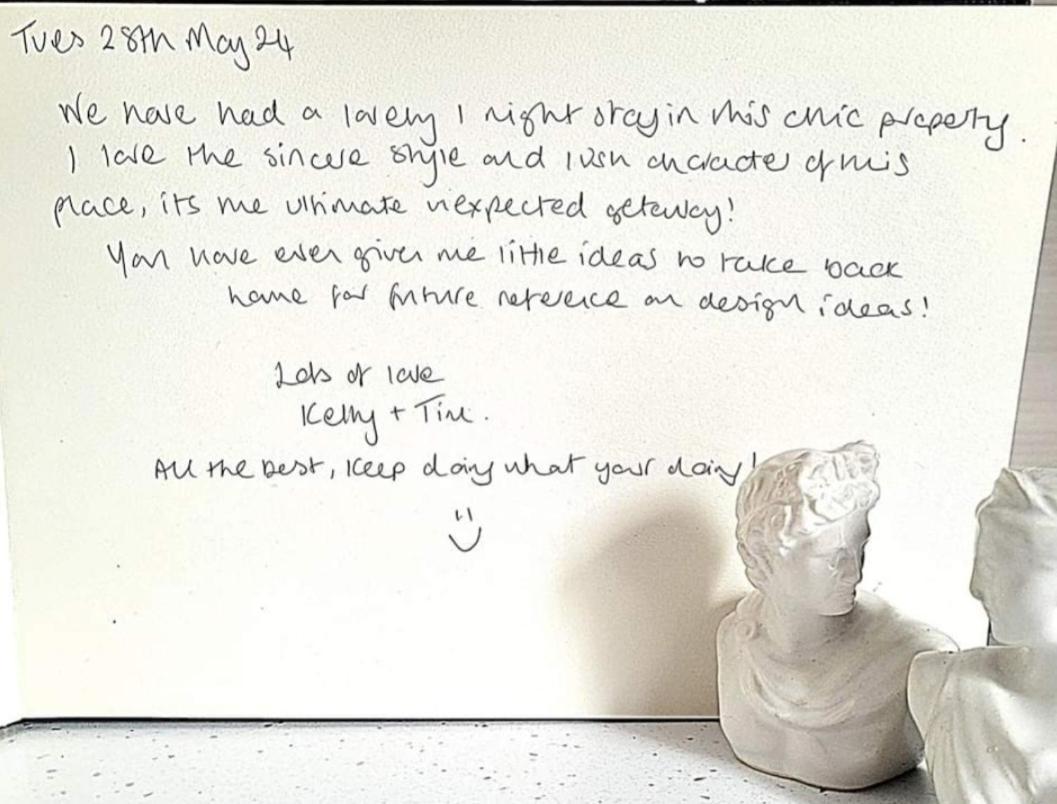 Tues 28th May 24
We have had a lovely 1 night stay in this chic property.
I love the sincere style and lush character of this
place, its the ultimate unexpected getaway!
You have even given me little ideas to take back
home for future reference on design ideas!
Lots of love
Kelly + Tim.
All the best, keep doing what your doing!